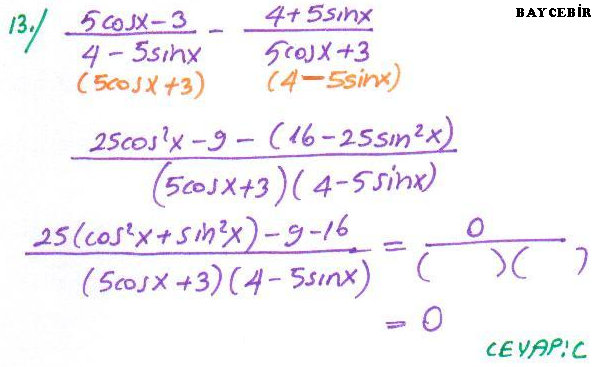 BAYCEBİR
13./ (5cosx-3)/(4-5sinx) - (4+5sinx)/(5cosx+3)
(5cosx+3) (4-5sinx)
(25cos²x-9-(16-25sin²x))/((5cosx+3)(4-5sinx))
(25(cos²x+sin²x)-9-16)/((5cosx+3)(4-5sinx)) = 0/(( )( ))
= 0
CEVAP:C